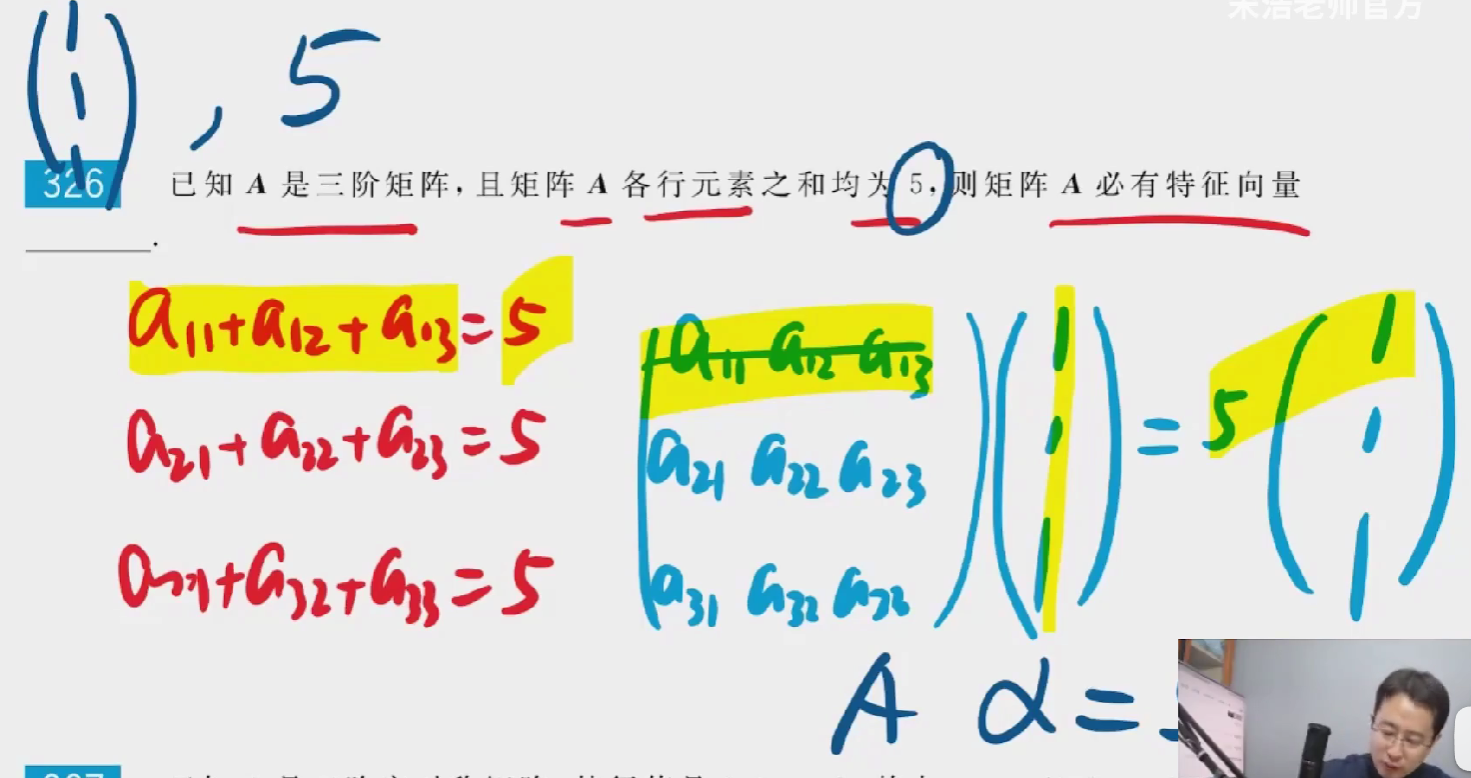 宋浩老师官方
(1 1 1) , 5
326 已知 A 是三阶矩阵,且矩阵 A 各行元素之和均为 5,则矩阵 A 必有特征向量
________.
a11+a12+a13=5
a21+a22+a23=5
a31+a32+a33=5
(a11 a12 a13
a21 a22 a23
a31 a32 a33) (1 1 1) = 5 (1 1 1)
A α =